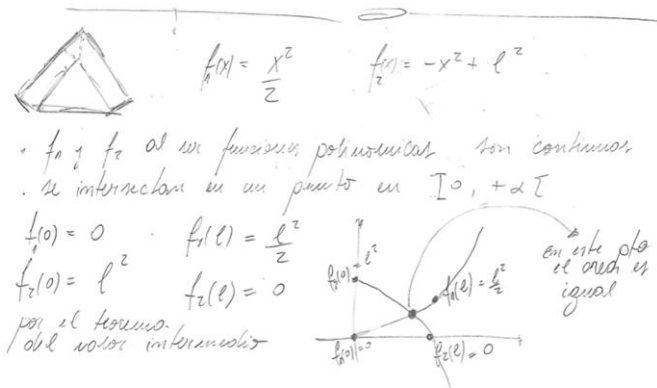 f₁(x) = x²/2
f₂(x) = -x² + l²
. f₁ y f₂ al ser funciones polinomicas son continuas
. se intersectan en un punto en [0, +∞[
f₁(0) = 0 . f₁(l) = l²/2
f₂(0) = l² f₂(l) = 0
por el teorema
del valor intermedio
f₂(0) = l²
f₁(l) = l²/2
f₁(0) = 0
f₂(l) = 0
en este pto
el area es
igual